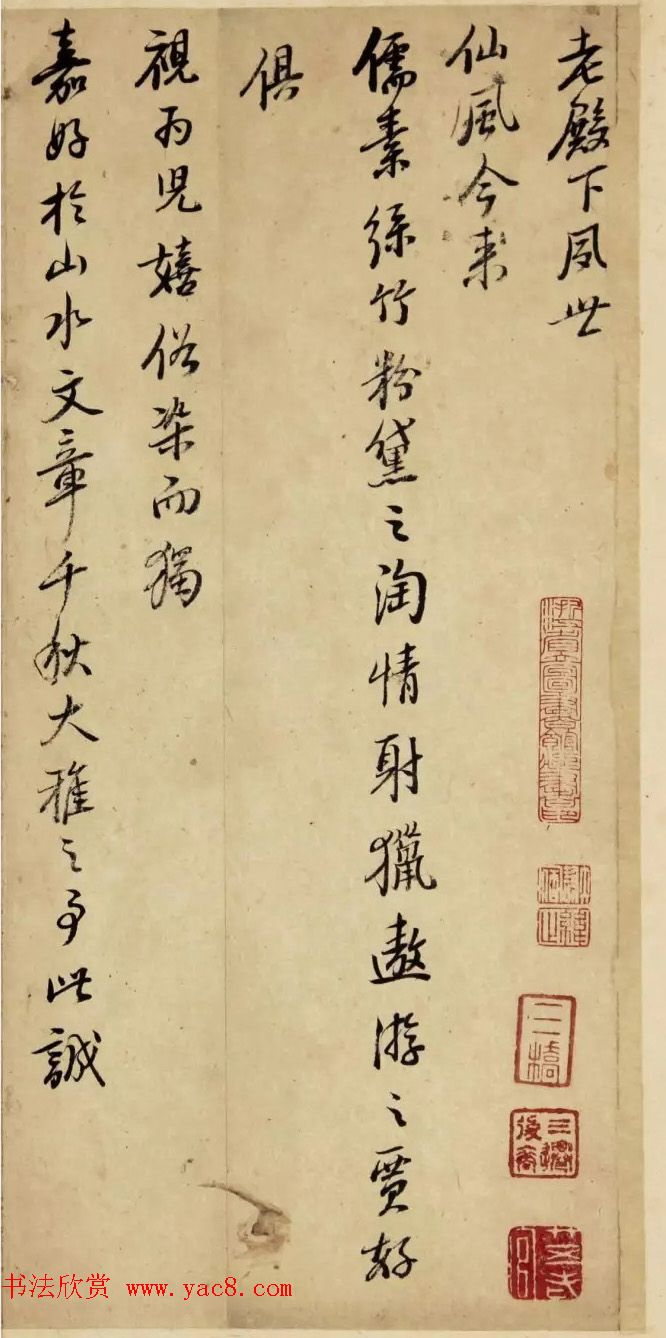 老殿下夙世
仙風今来
儒素絲竹粉黛之淘情射獵遨游之賈好
俱
視為児嬉俗染而獨
嘉好於山水文章千秋大雅之事此誠
三橋
書法欣赏 www.yac8.com